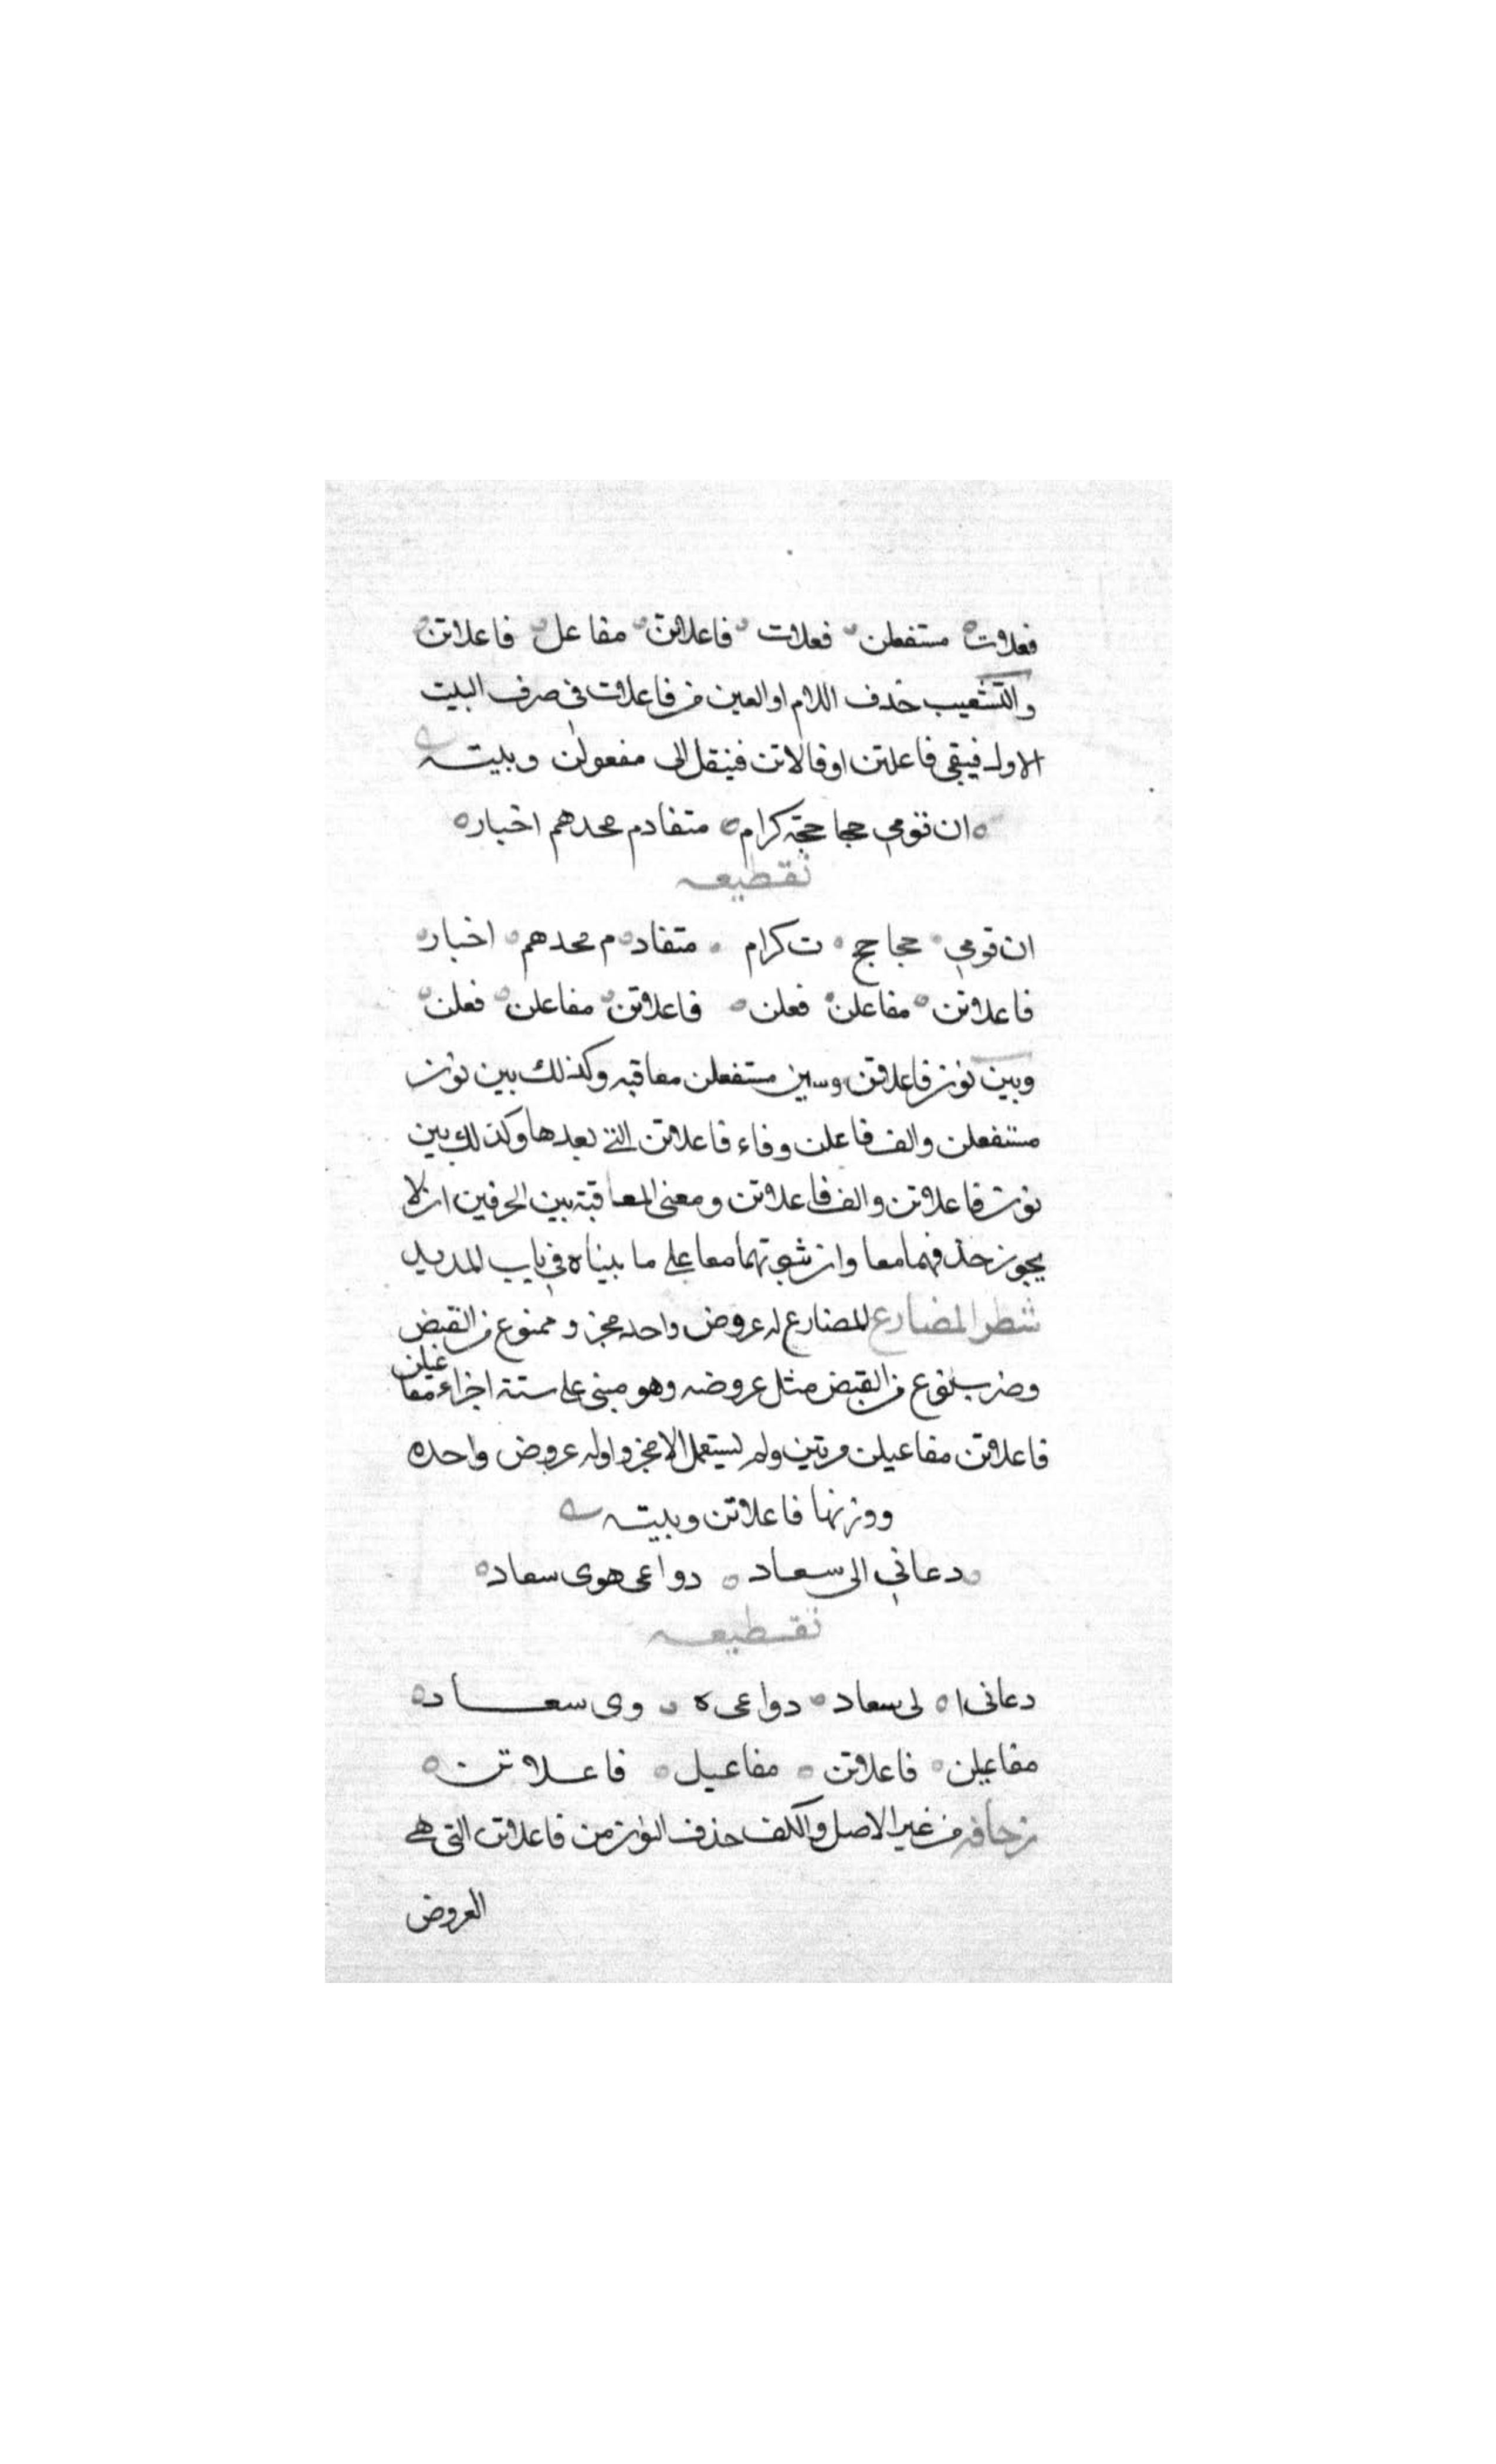 فعلات مستفعلن فعلات فاعلاتن مفاعل فاعلاتن
والتشعيب حذف اللام او العين من فاعلات في صرف البيت
الاول فيبقى فاعلتن او فالاتن فينقل الى مفعولن وبيته
ان قومي حجاحجة كرام متقادم مجدهم اخيار
تقطيعه
ان قومي حجاحج ت كرام متقاد م مجدهم اخيار
فاعلاتن مفاعلن فعلن فاعلاتن مفاعلن فعلن
وبين نون فاعلاتن وسين مستفعلن معاقبه وكذلك بين نون
مستفعلن والف فاعلن وفاء فاعلاتن التي بعدها وكذلك بين
نون فاعلاتن والف فاعلاتن ومعنى المعاقبة بين الحرفين ان لا
يجوز حذفهما معا وان ثبوتهما معا على ما بيناه في باب المديد
شطر المضارع للمضارع له عروض واحده مجزو ممنوع من القبض
وضرب ممنوع من القبض مثل عروضه وهو مبنى على ستة اجزاء مفاعيلن
فاعلاتن مفاعيلن مرتين ولم يستعمل الا مجزوا وله عروض واحده
ووزنها فاعلاتن وبيته
دعاني الى سعاد دواعى هوى سعاد
تقطيعه
دعانى ا لى سعاد دواعى ه وى سعاد
مفاعيلن فاعلاتن مفاعيل فاعلاتن
زحافه من غير الاصل والكف حذف النون من فاعلاتن التى هي
العروض